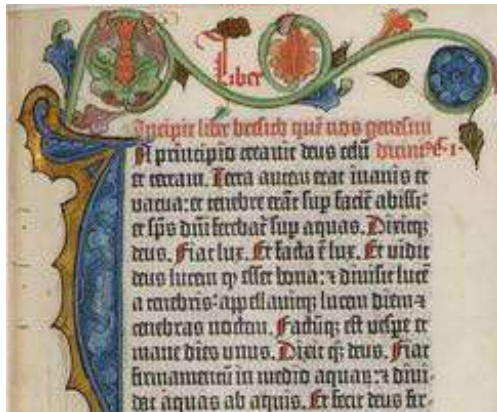 Liber
Incipit liber bresith quē nos genesim
In principio creavit deus celū dicimꝰ c̄·1·
et terram. Terra autem erat inanis et
vacua: et tenebre erāt sup faciē abissi:
et sp̄s dn̄i ferebat̄ sup aquas. Dixitqꝫ
deus. Fiat lux. Et facta ē lux. Et vidit
deus lucem ꝙ esset bona: ⁊ divisit lucē
a tenebris: appellavitqꝫ lucem diem ⁊
tenebras noctem. Factūqꝫ est vespe et
mane dies unus. Dixit qꝫ deus. Fiat
firmamentū in medio aquaꝝ: ⁊ divi-
dat aquas ab aquis. Et fecit deus fir-